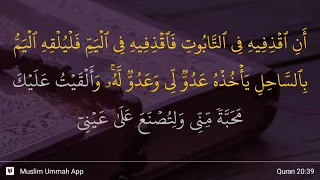 أَنِ ٱقْذِفِيهِ فِى ٱلتَّابُوتِ فَٱقْذِفِيهِ فِى ٱلْيَمِّ فَلْيُلْقِهِ ٱلْيَمُّ
بِٱلسَّاحِلِ يَأْخُذْهُ عَدُوٌّ لِّى وَعَدُوٌّ لَّهُۥ ۚ وَأَلْقَيْتُ عَلَيْكَ
مَحَبَّةً مِّنِّى وَلِتُصْنَعَ عَلَىٰ عَيْنِىٓ
Muslim Ummah App
Quran 20:39